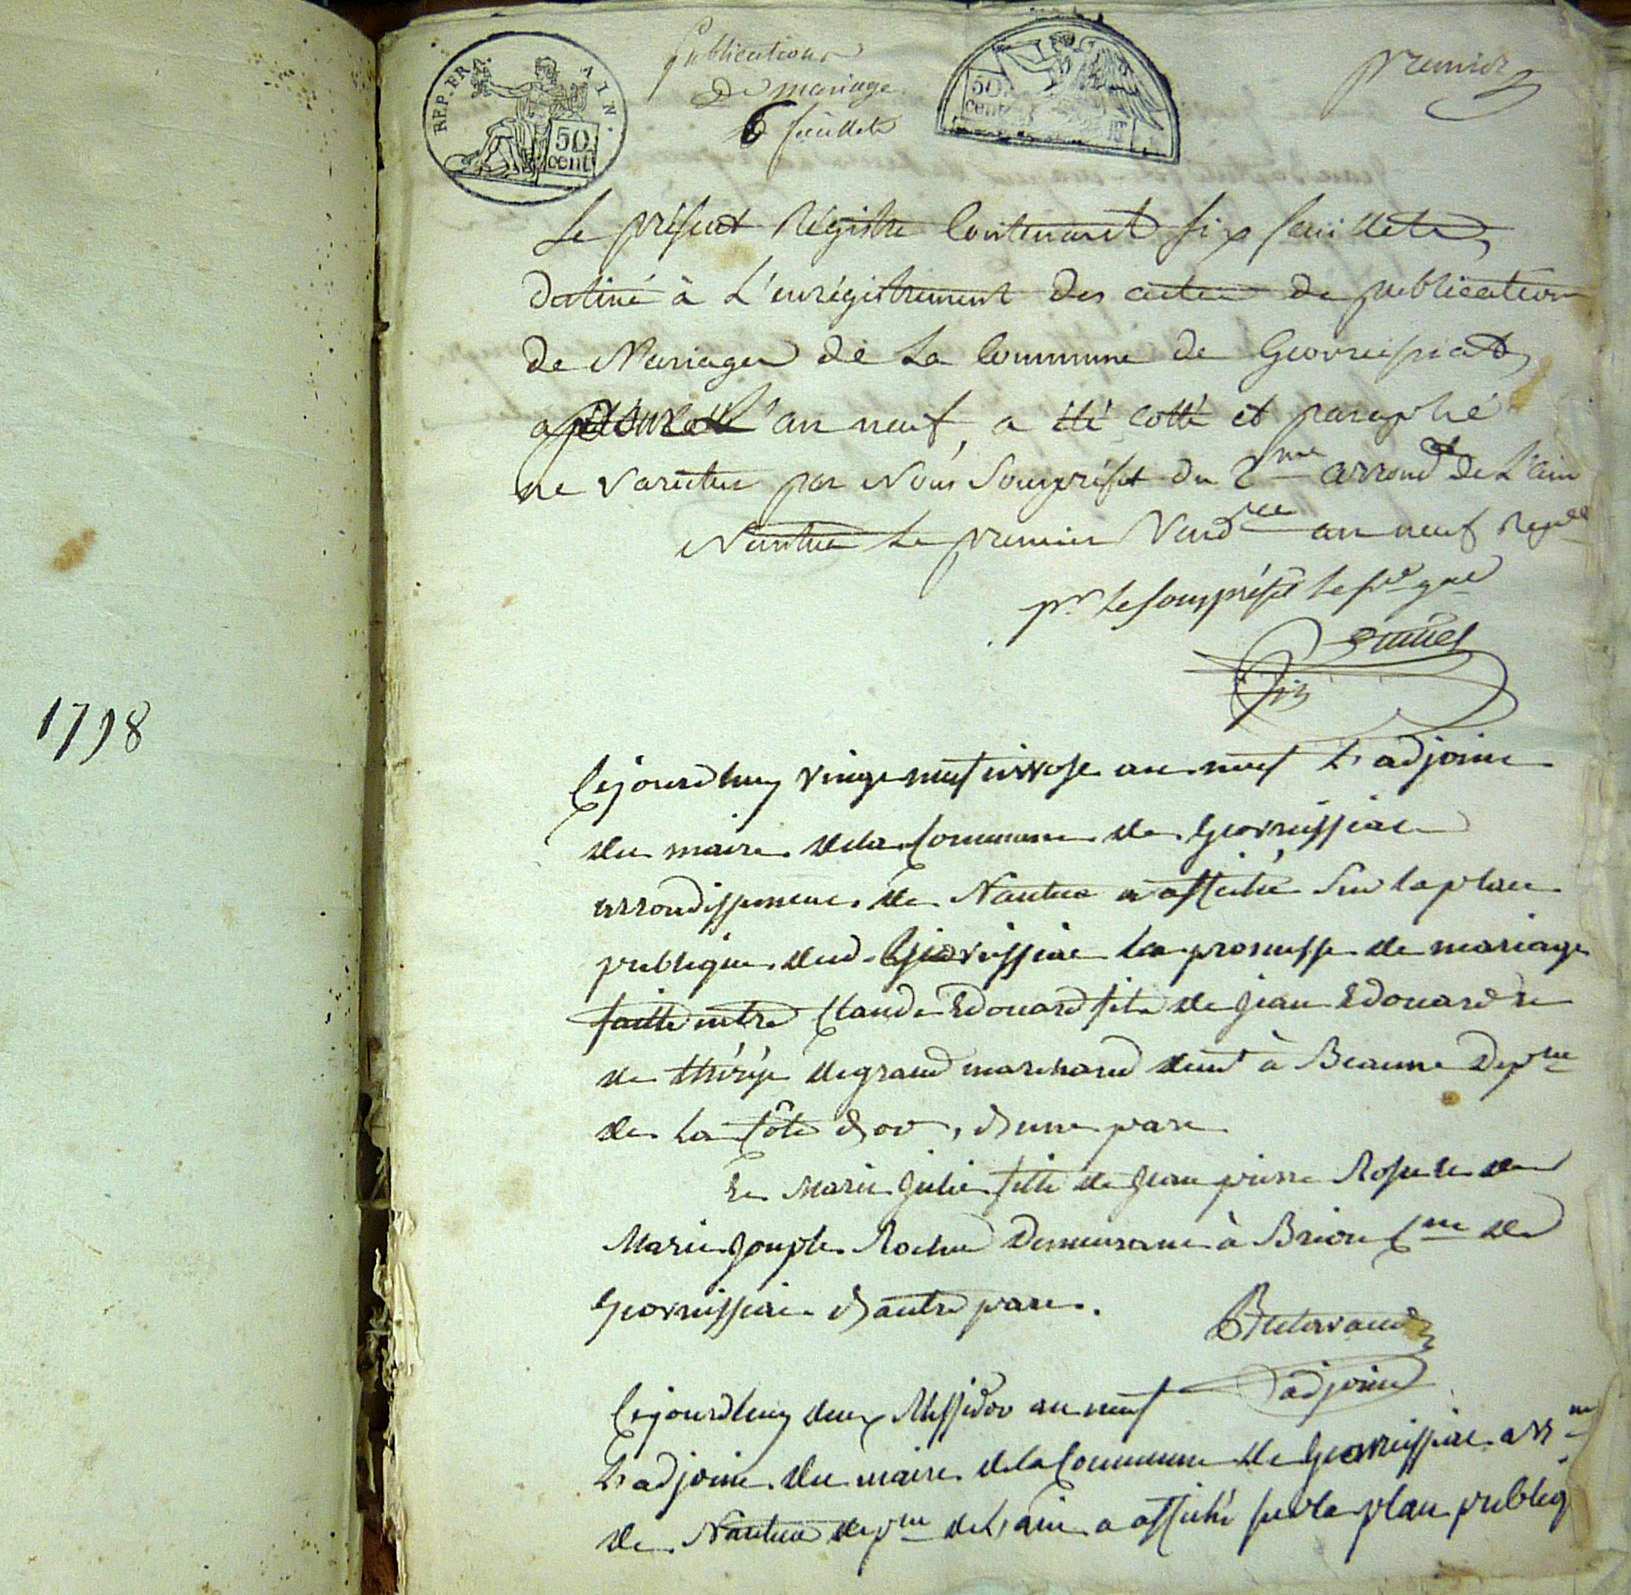 1798
REP. FRA. AIN.
50 cent
Publications
De mariage
6 feuillets
50 cent
premier
Le présent Régistre Contenant six feuillets,
destiné à L'enrégistrement des actes de publication
de Mariages de La Commune de Geovreissiat,
L'an neuf, a été cotté et paraphé
ne varietur par Nous Souspréfet du 2me arrondt de L'ain
Nantua Le premier Vendre an neuf Repe
pr le sousprefet le sre gnal
Cejourdhuy vingt neuf nivose an neuf L'adjoint
du maire de la Commune de Geovreissiat
arrondissement de Nantua a affiché Sur la place
publique dud. Géovreissiat la promesse de mariage
faitte entre Claude Edouard fils de jean Edouard et
de thérèse degrand marchand demt à Beaune Depme
de La Côte d'or, d'une part
Et Marie Julie fille de jean pierre Rosset et de
Marie Joseph Rochet Demeurant à Brion Cne de
Geovreissiat d'autre part.
adjoint
Cejourdhuy deux Messidor an neuf
L'adjoint du maire de la Commune de Geovreissiat arrnt
de Nantua depmt de L'ain a affiché sur la place publiq